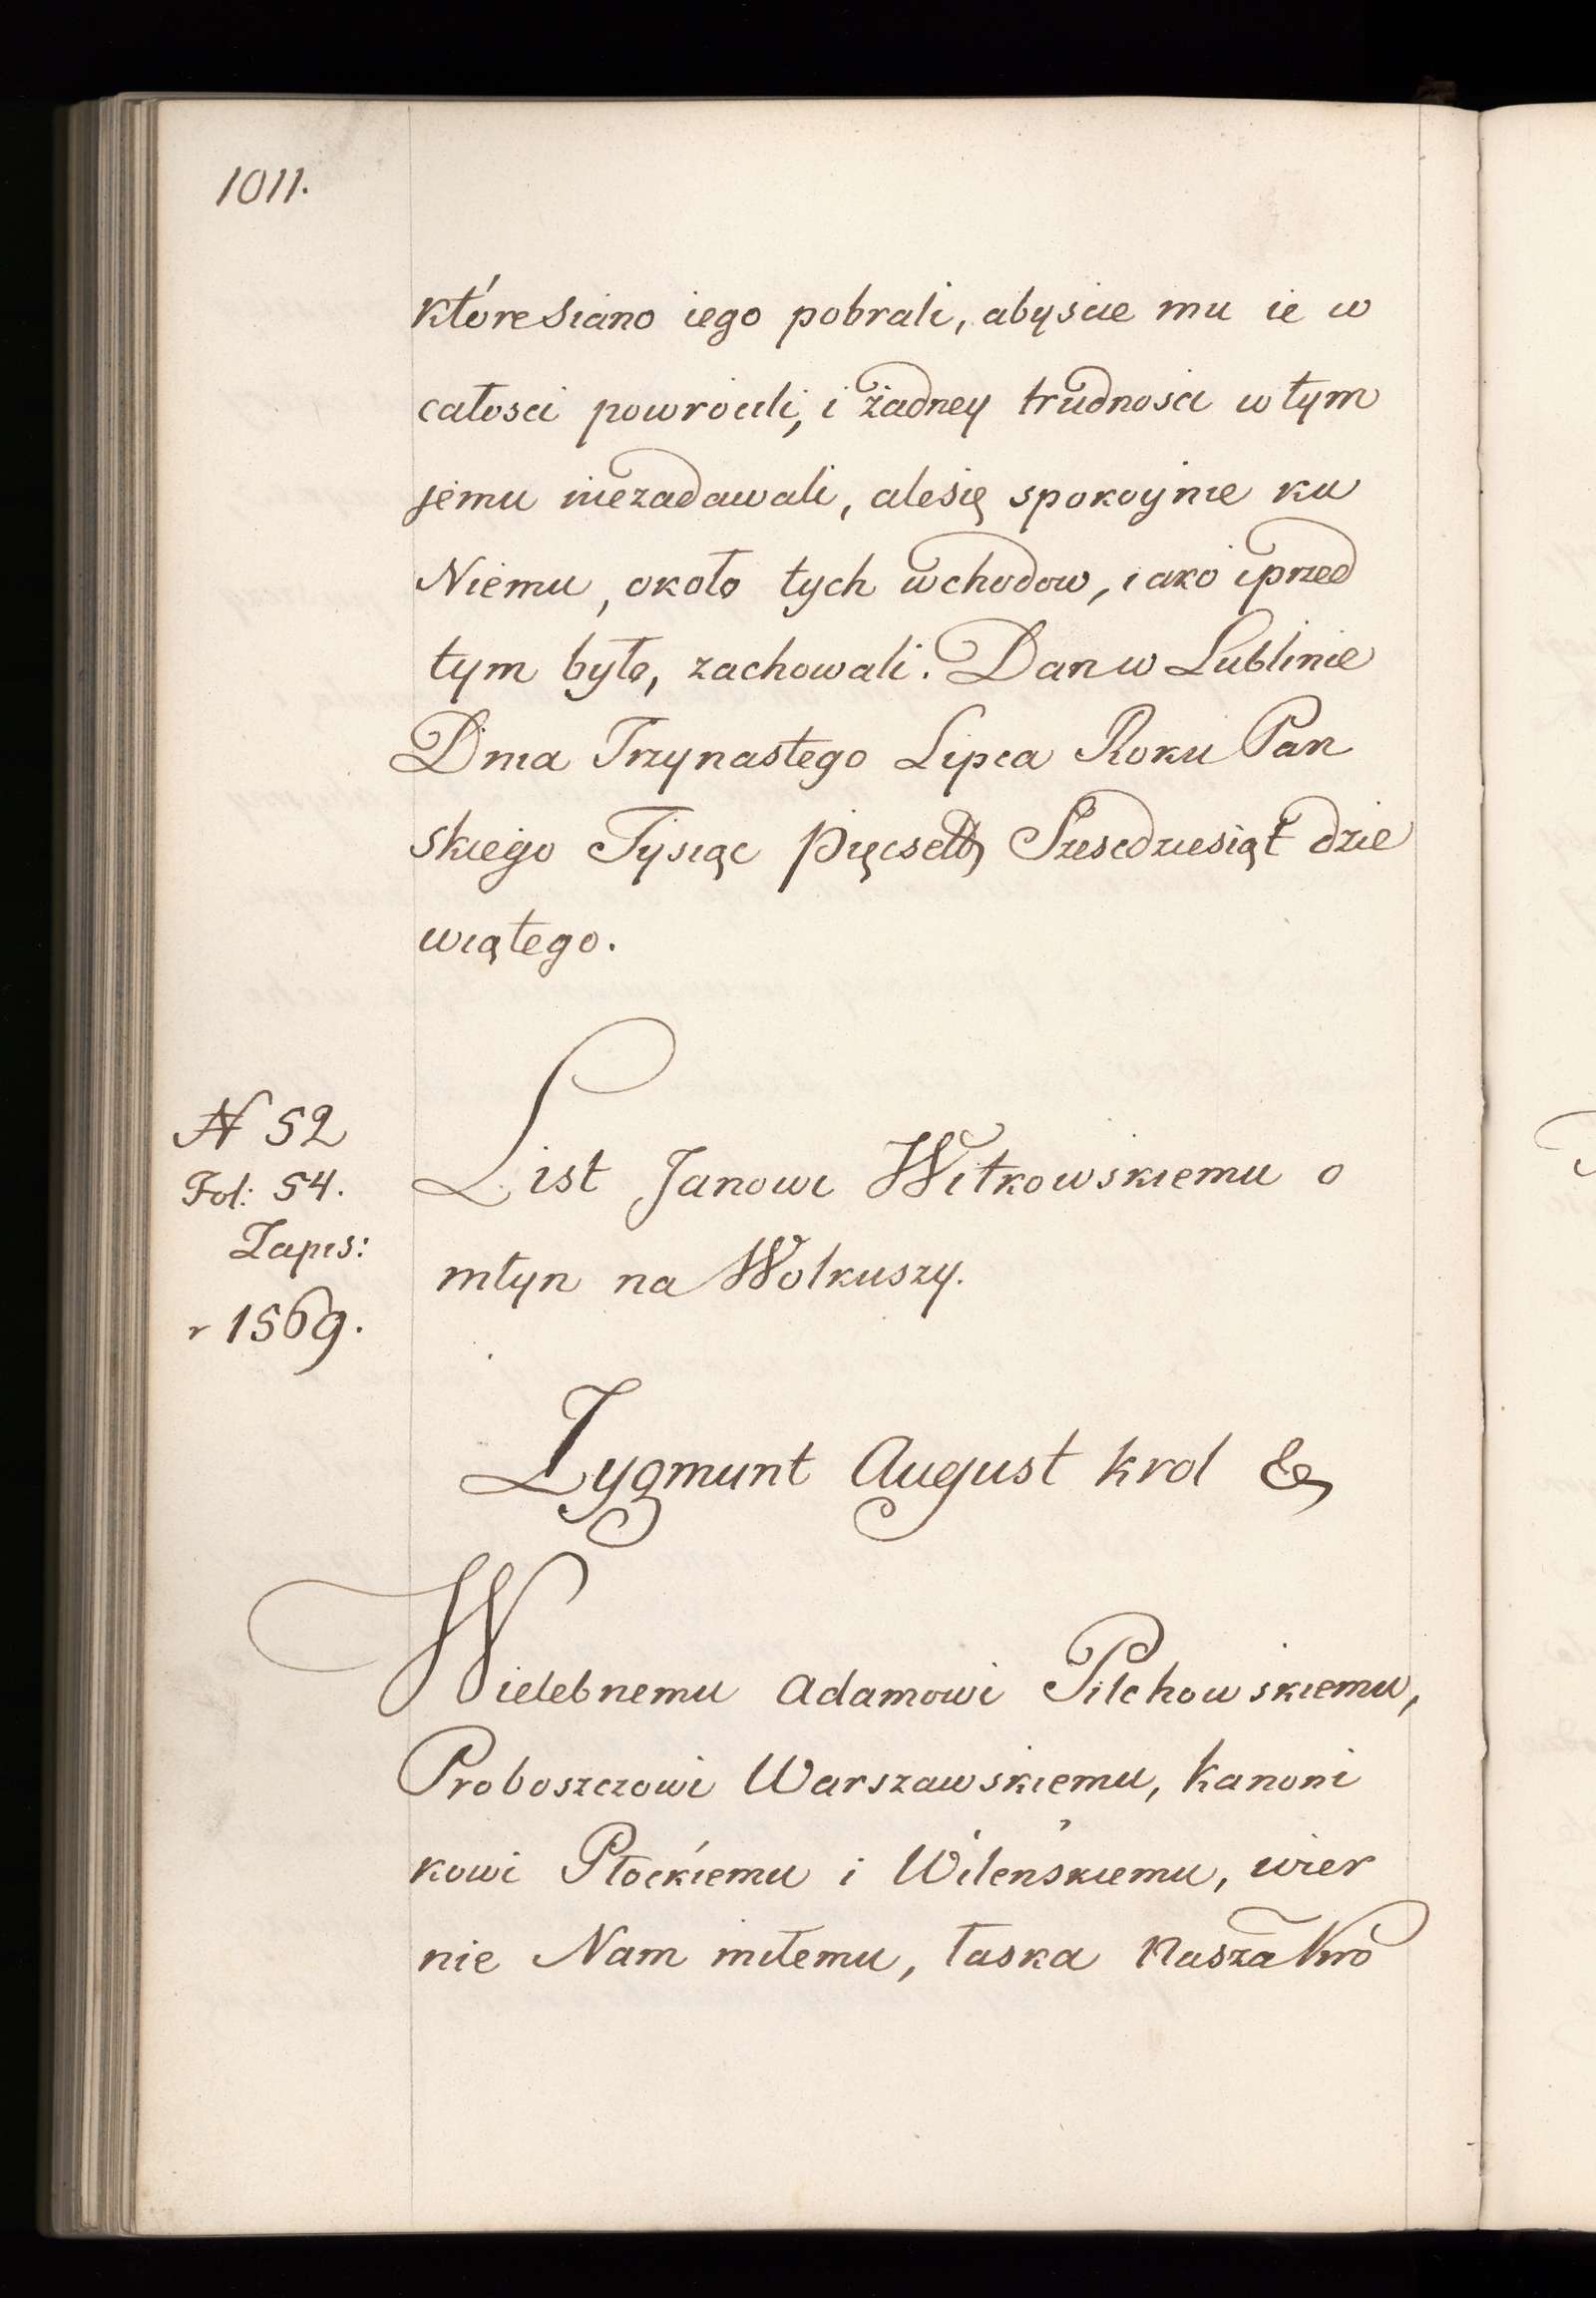 1011.
któresiano iego pobrali, abyscie mu ie w
całosci powrócili, i żadney trudnosci w tym
jemu niezadawali, alesię spokoynie ku
Niemu, około tych wchodow, iako iprzed
tym było, zachowali. Dan w Lublinie
Dnia Trzynastego Lipca Roku Pan
skiego Tysiąc Pięcseth Szescdziesiąt dzie
wiątego.
N 52
Fol: 54.
Zapis:
r 1569.
List Janowi Witkowskiemu o
młyn na Wolkuszy.
Zygmunt August krol &
Wielebnemu Adamowi Pilchowskiemu,
Proboszczowi Warszawskiemu, Kanoni
kowi Płockiemu i Wilenskiemu, wier
nie Nam miłemu, łaska Nasza Kró